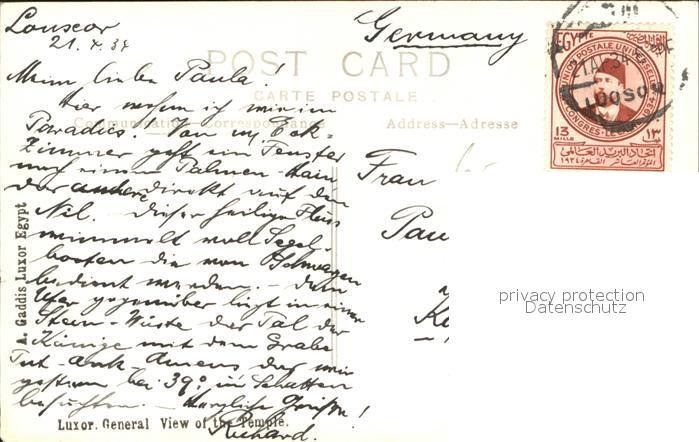 Louxor
21.4.34
Germany
POST CARD
CARTE POSTALE
Communication—Correspondance
Address—Adresse
Mein liebe Paula!
Hier wohnen ich wie im
Paradies. Von m. Eck-
Zimmer geht ein Fenster
nach einem Palmen-hain
der andere direkt auf den
Nil. Dieser heilige Fluss
wimmelt voll Segel-
booten die von Schwarzen
bedient werden. – Dem
Ufer gegenüber liegt in einer
Stein-Wüste das Tal der
Könige mit dem Grabe
Tut-ank-Amens das wir
gestern bei 39° im Schatten
besuchten. – Herzliche Grüsse!
Richard.
Frau
Pau
A. Gaddis Luxor Egypt
Luxor. General View of the Temple.
EGYPTE
UNION POSTALE UNIVERSELLE
21.AP.34
LOUXOR
CONGRES
13
MILLS
١٣
اتحاد البريد العالمى
المؤتمر العاشر القاهرة ١٩٣٤
privacy protection
Datenschutz